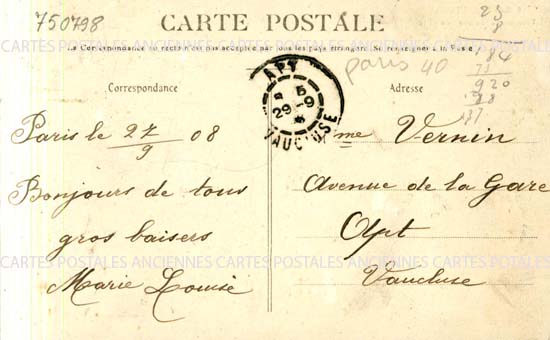 750798
CARTE POSTALE
La Correspondance au recto n'est pas acceptée par tous les pays étrangers. Se renseigner à la Poste
CARTES POSTALES ANCIENNES CARTES POSTALES ANCIENNES CARTES
paris 40
23
8
84
73
920
28
137
Correspondance
Paris le 27/9 08
Bonjours de tous
gros baisers
Marie Louise
APT
5
29-9
VAUCLUSE
Adresse
Mme Vernin
Avenue de la Gare
Apt
Vaucluse
CARTES POSTALES ANCIENNES CARTES POSTALES ANCIENNES CARTES